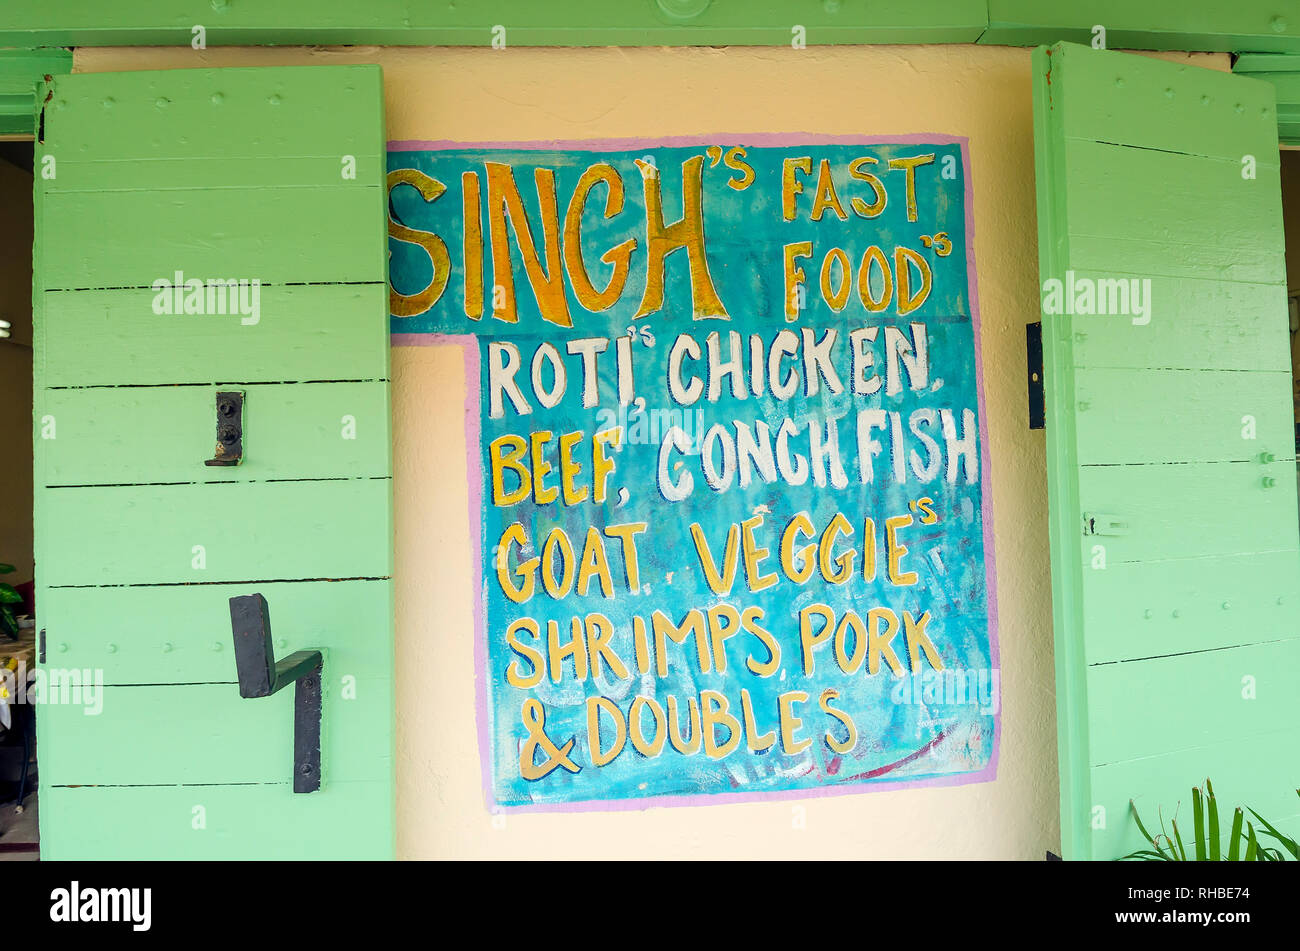 SINGH'S FAST
FOOD'S
ROTI'S, CHICKEN,
BEEF, CONCH FISH
GOAT, VEGGIE'S
SHRIMPS, PORK
& DOUBLES
alamy
Image ID: RHBE74
www.alamy.com